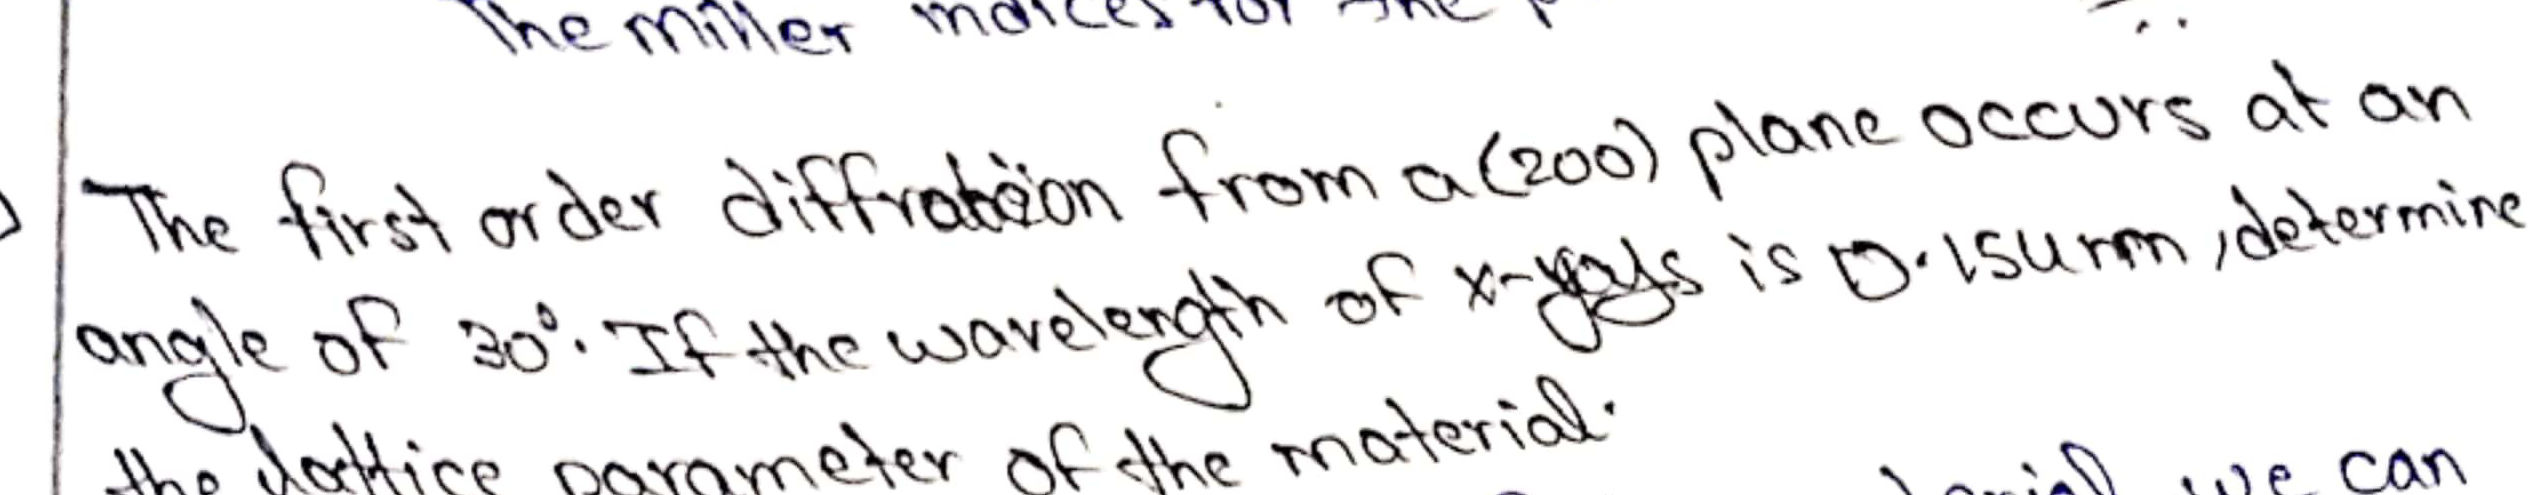 The miller indices for the
The first order diffration from a (200) plane occurs at an
angle of 30°. If the wavelength of x-rays is 0.154 nm, determine
the lattice parameter of the material.
we can